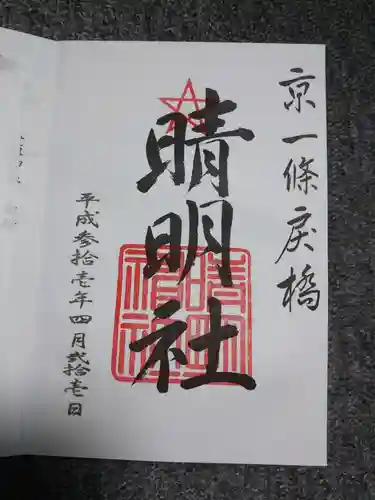 京一條戻橋
晴明社
平成参拾壱年四月弐拾壱日